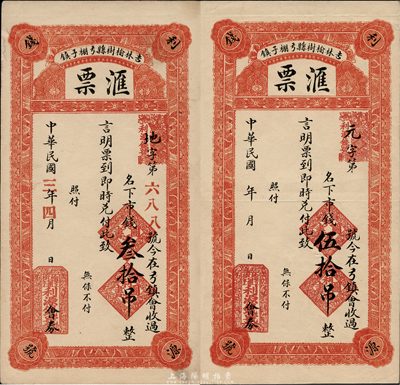 利錢
吉林榆樹縣弓棚子鎮
滙票
地字第六八八號今在弓鎮會收過
名下市錢叁拾吊整
言明票到即時兌付此致
照付
無保不付
中華民國三年四月 日
會券
號
利錢
吉林榆樹縣弓棚子鎮
滙票
元字第 號今在弓鎮會收過
名下市錢伍拾吊整
言明票到即時兌付此致
照付
無保不付
中華民國 年 月 日
會券
號